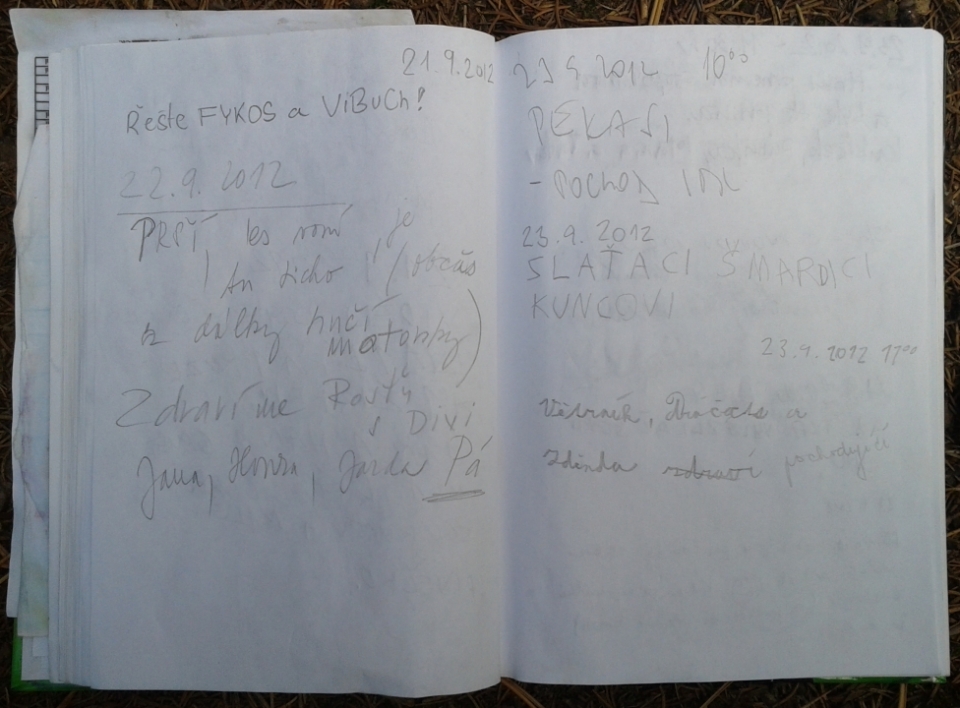 21.9.2012
Řešte FYKOS a VÝBUCh!
22.9.2012
PRŠÍ, les voní, je
tu ticho! (občas
z dálky hučí
motorky)
Zdravíme Rastu
s Divi
Jana, Honza, Jarda Pá
23 9 2012 10°°
PEKAŘI
- POCHOD
23.9.2012
SLAŤÁCI ŠMARDICI
KUNCOVI
23.9.2012 11°°
Větrník, Dráček a
Zdenda zdraví pochodující